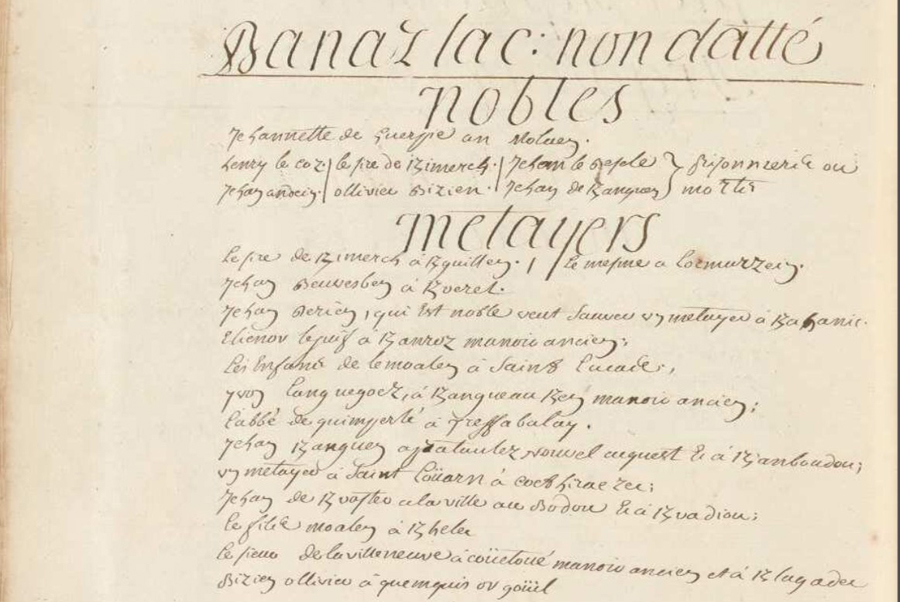 Banaz lac: non datté
nobles
Jehannette de guerpe au Moluen.
henry le coz | le sre de Kimerch. | Jehan le desple } prisonniers ou
Jehan | ollivier Bizien. | Jehan de Kanguen } morts
metayers
Le sre de Kimerch à Kguillen. / Le mesme a locmurzein.
Jehan à Kveret.
Jehan Derien, qui Est noble veut sauver un metayer à
Elienor le juif à Kanroz manoir ancien;
Les Enfans de le moalen à Saint Eucade;,
yvon Languegoez, à manoir ancien;
L'abbé de quimperlé à Treffabalay.
Jehan Kanguen nouvel acquest Et à Kjanboudou;
un metayer à Saint Coüarn à
Jehan de a la ville au Bodou Et à Kvadiou;
le fils moalen à Khele
le sieur de la villeneuve à coüetoué manoir ancien et à Klagadec
Bizien ollivier à quemquis or goüil